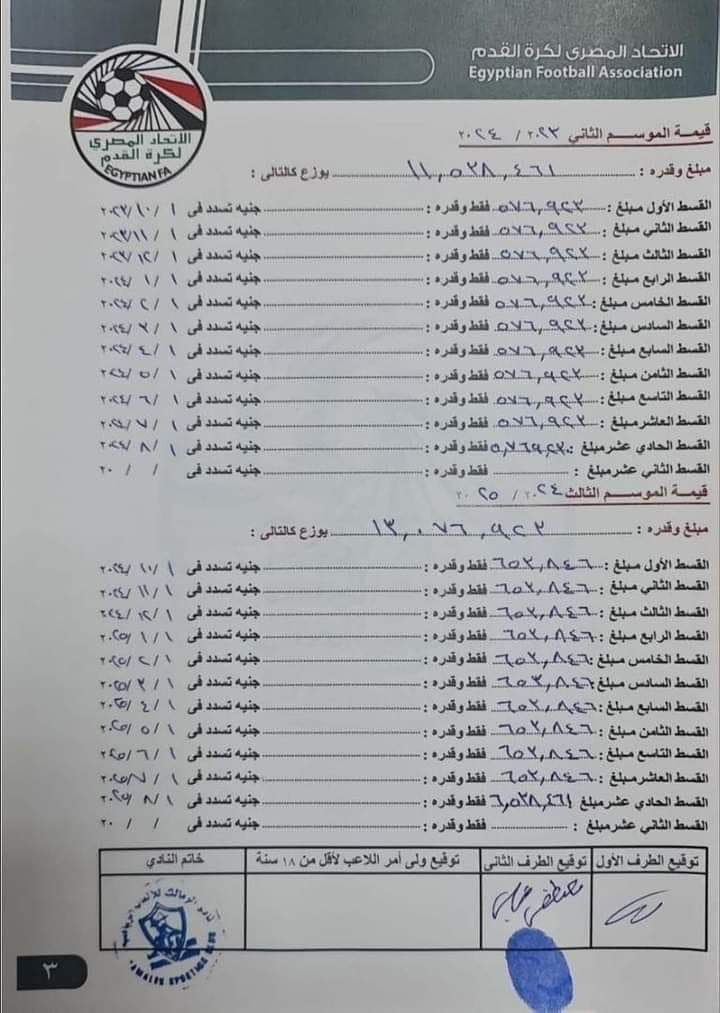 الاتحاد المصرى لكرة القدم
Egyptian Football Association
الاتحاد المصرى
لكرة القدم
EGYPTIAN FA
قيمة الموسم الثاني ٢٠٢٣ / ٢٠٢٤
مبلغ وقدره : ١١,٥٣٨,٤٦١ يوزع كالتالى :
القسط الأول مبلغ : ٥٧٦,٩٢٣ فقط وقدره : جنيه تسدد فى ١ / ١٠ / ٢٠٢٣
القسط الثاني مبلغ : ٥٧٦,٩٢٣ فقط وقدره : جنيه تسدد فى ١ / ١١ / ٢٠٢٣
القسط الثالث مبلغ : ٥٧٦,٩٢٣ فقط وقدره : جنيه تسدد فى ١ / ١٢ / ٢٠٢٣
القسط الرابع مبلغ : ٥٧٦,٩٢٣ فقط وقدره : جنيه تسدد فى ١ / ١ / ٢٠٢٤
القسط الخامس مبلغ : ٥٧٦,٩٢٣ فقط وقدره : جنيه تسدد فى ١ / ٢ / ٢٠٢٤
القسط السادس مبلغ : ٥٧٦,٩٢٣ فقط وقدره : جنيه تسدد فى ١ / ٣ / ٢٠٢٤
القسط السابع مبلغ : ٥٧٦,٩٢٣ فقط وقدره : جنيه تسدد فى ١ / ٤ / ٢٠٢٤
القسط الثامن مبلغ : ٥٧٦,٩٢٣ فقط وقدره : جنيه تسدد فى ١ / ٥ / ٢٠٢٤
القسط التاسع مبلغ : ٥٧٦,٩٢٣ فقط وقدره : جنيه تسدد فى ١ / ٦ / ٢٠٢٤
القسط العاشر مبلغ : ٥٧٦,٩٢٣ فقط وقدره : جنيه تسدد فى ١ / ٧ / ٢٠٢٤
القسط الحادي عشر مبلغ : ٥,٧٦٩,٢٣ فقط وقدره : جنيه تسدد فى ١ / ٨ / ٢٠٢٤
القسط الثاني عشر مبلغ : فقط وقدره : جنيه تسدد فى / / ٢٠
قيمة الموسم الثالث ٢٠٢٤ / ٢٠٢٥
مبلغ وقدره : ١٣,٠٧٦,٩٢٣ يوزع كالتالى :
القسط الأول مبلغ : ٦٥٣,٨٤٦ فقط وقدره : جنيه تسدد فى ١ / ١٠ / ٢٠٢٤
القسط الثاني مبلغ : ٦٥٣,٨٤٦ فقط وقدره : جنيه تسدد فى ١ / ١١ / ٢٠٢٤
القسط الثالث مبلغ : ٦٥٣,٨٤٦ فقط وقدره : جنيه تسدد فى ١ / ١٢ / ٢٠٢٤
القسط الرابع مبلغ : ٦٥٣,٨٤٦ فقط وقدره : جنيه تسدد فى ١ / ١ / ٢٠٢٥
القسط الخامس مبلغ : ٦٥٣,٨٤٦ فقط وقدره : جنيه تسدد فى ١ / ٢ / ٢٠٢٥
القسط السادس مبلغ : ٦٥٣,٨٤٦ فقط وقدره : جنيه تسدد فى ١ / ٣ / ٢٠٢٥
القسط السابع مبلغ : ٦٥٣,٨٤٦ فقط وقدره : جنيه تسدد فى ١ / ٤ / ٢٠٢٥
القسط الثامن مبلغ : ٦٥٣,٨٤٦ فقط وقدره : جنيه تسدد فى ١ / ٥ / ٢٠٢٥
القسط التاسع مبلغ : ٦٥٣,٨٤٦ فقط وقدره : جنيه تسدد فى ١ / ٦ / ٢٠٢٥
القسط العاشر مبلغ : ٦٥٣,٨٤٦ فقط وقدره : جنيه تسدد فى ١ / ٧ / ٢٠٢٥
القسط الحادي عشر مبلغ : ٦,٥٣٨,٤٦١ فقط وقدره : جنيه تسدد فى ١ / ٨ / ٢٠٢٥
القسط الثاني عشر مبلغ : فقط وقدره : جنيه تسدد فى / / ٢٠
توقيع الطرف الأول توقيع الطرف الثانى توقيع ولى أمر اللاعب لأقل من ١٨ سنة خاتم النادي
نادى الزمالك للألعاب الرياضية
ZAMALEK SPORTING CLUB
٣